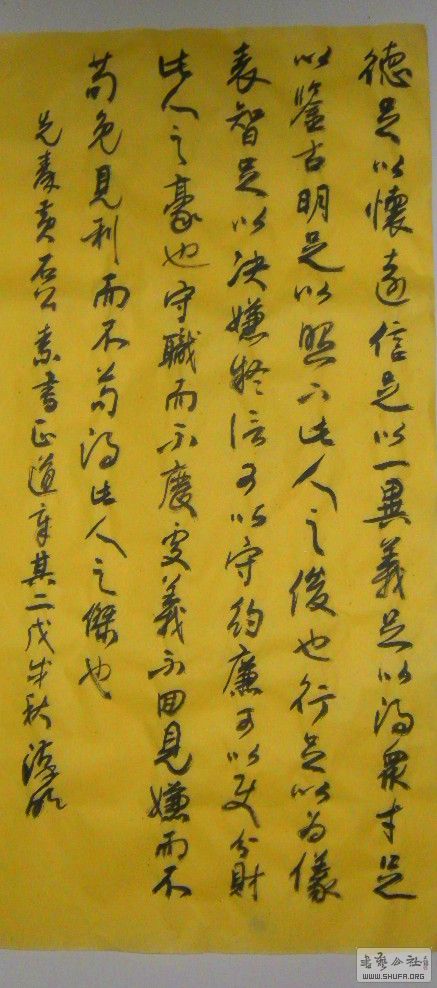 德足以懷遠信足以一異義足以得眾才足
以鑒古明足以照下此人之俊也行足以為儀
表智足以決嫌疑信可以守約廉可以使分財
此人之豪也守職而不廢處義不回見嫌而不
苟免見利而不苟得此人之傑也
先秦黃石公素書正道章其二戊
秋
書法公社
WWW.SHUFA.ORG